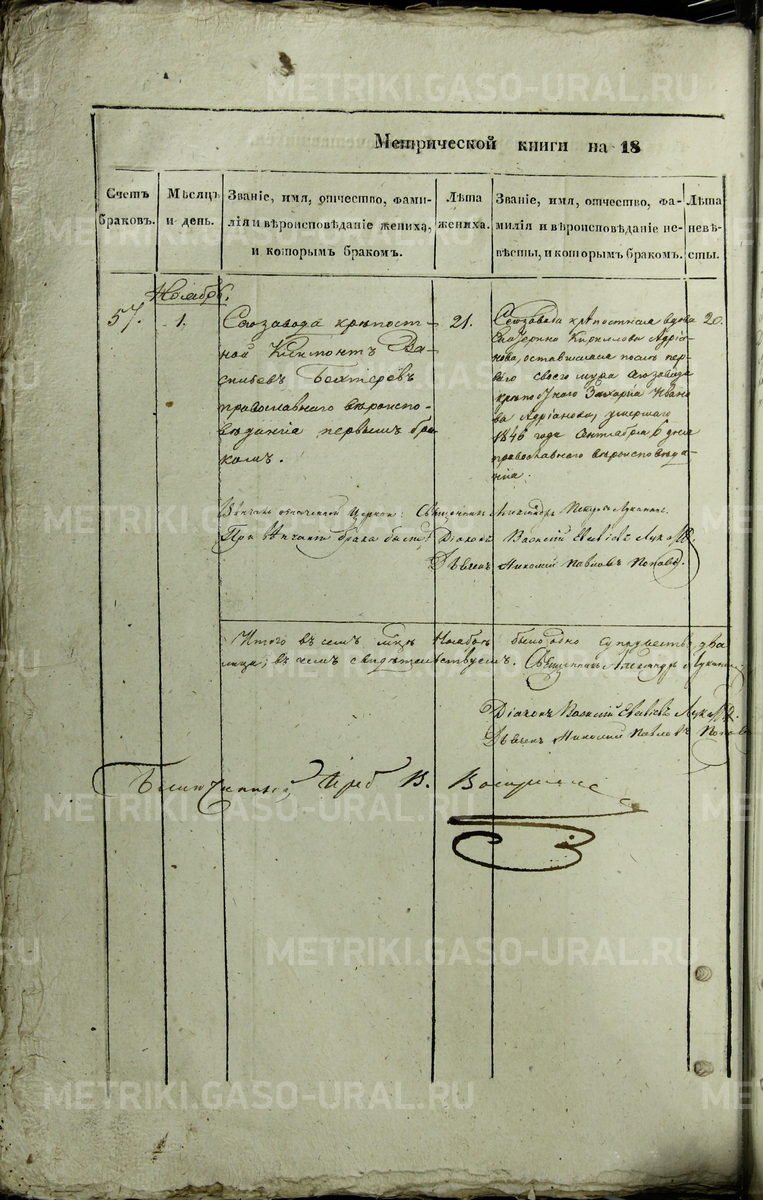 Метрической книги на 18
Счетъ браковъ.
Мѣсяцъ и день.
Званіе, имя, отчество, фами-
лія и вѣроисповѣданіе жениха,
и которымъ бракомъ.
Лѣта
жениха.
Званіе, имя, отчество, фа-
милія и вѣроисповѣданіе не-
вѣсты, и которымъ бракомъ.
Лѣта
невѣ-
сты.
Ноябрь.
57.
1.
Сегозавода крѣпост-
ной Климонтъ Ва-
сильевъ Бехтеревъ
православнаго вѣроиспо-
вѣданія первымъ бра-
комъ.
21.
Сегозавода крѣпостная вдова
Екатерина Кириллова Адріа-
нова, оставшаяся послѣ пер-
ваго своего мужа сегозавода
крѣпостного Захарія Ивано-
ва Адріанова, умершаго
1846 года Сентября 6 дня
православнаго вѣроисповѣда-
нія.
20.
Вѣнчалъ означенной Церкви: Священникъ Александръ Петровъ Луканинъ.
При вѣнчаніи брака были: Діаконъ Василій
Дьячекъ Николай Павловъ Поповъ.
Итого въ семъ мцѣ Ноябрѣ было одно супружество два
лица; въ чемъ свидѣтельствуемъ. Священникъ Александръ Луканинъ
Діаконъ Василій
Дьячекъ Николай Павловъ Поповъ
METRIKI.GASO-URAL.RU